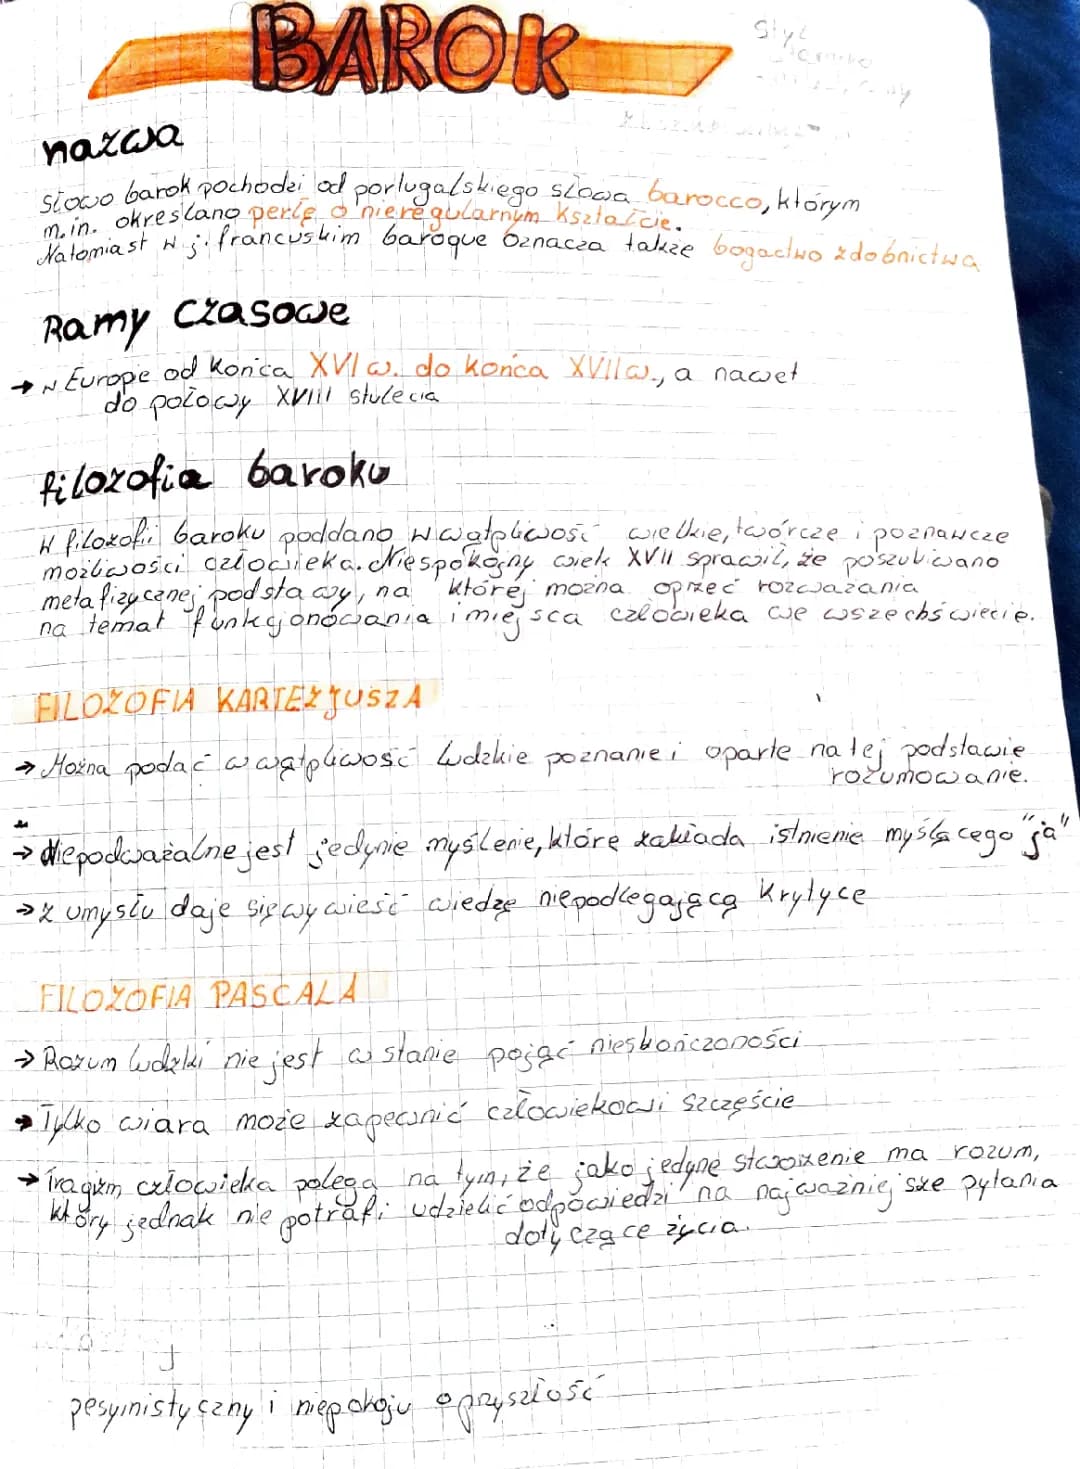 BAROK
nazwa
Słowo barok pochodzi od portugalskiego słowa barocco, którym
m.in. określano perłę o nieregularnym kształcie.
Natomiast w j. francuskim baroque oznacza także bogactwo zdobnictwa
Ramy czasowe
→ w Europe od końca XVI w. do końca XVII w., a nawet
do połowy XVIII stulecia
filozofia baroku
W filozofii baroku poddano w wątpliwość wielkie, twórcze i poznawcze
możliwości człowieka. Niespokojny wiek XVII sprawił, że poszukiwano
metafizycznej podstawy, na której można oprzeć rozważania
na temat funkcjonowania i miejsca człowieka we wszechświecie.
FILOZOFIA KARTEZJUSZA
→ Można podać w wątpliwość ludzkie poznanie i oparte na tej podstawie
rozumowanie.
→ Niepodważalne jest jedynie myślenie, które zakłada istnienie myślącego "ja"
→ z umysłu daje się wywieść wiedzę niepodlegającą krytyce
FILOZOFIA PASCALA
→ Rozum ludzki nie jest w stanie pojąć nieskończoności
→ Tylko wiara może zapewnić człowiekowi szczęście
→ Tragizm człowieka polega na tym, że jako jedyne stworzenie ma rozum,
który jednak nie potrafi udzielić odpowiedzi na najważniejsze pytania
dotyczące życia.
pesymistyczny i niepokoju o przyszłość